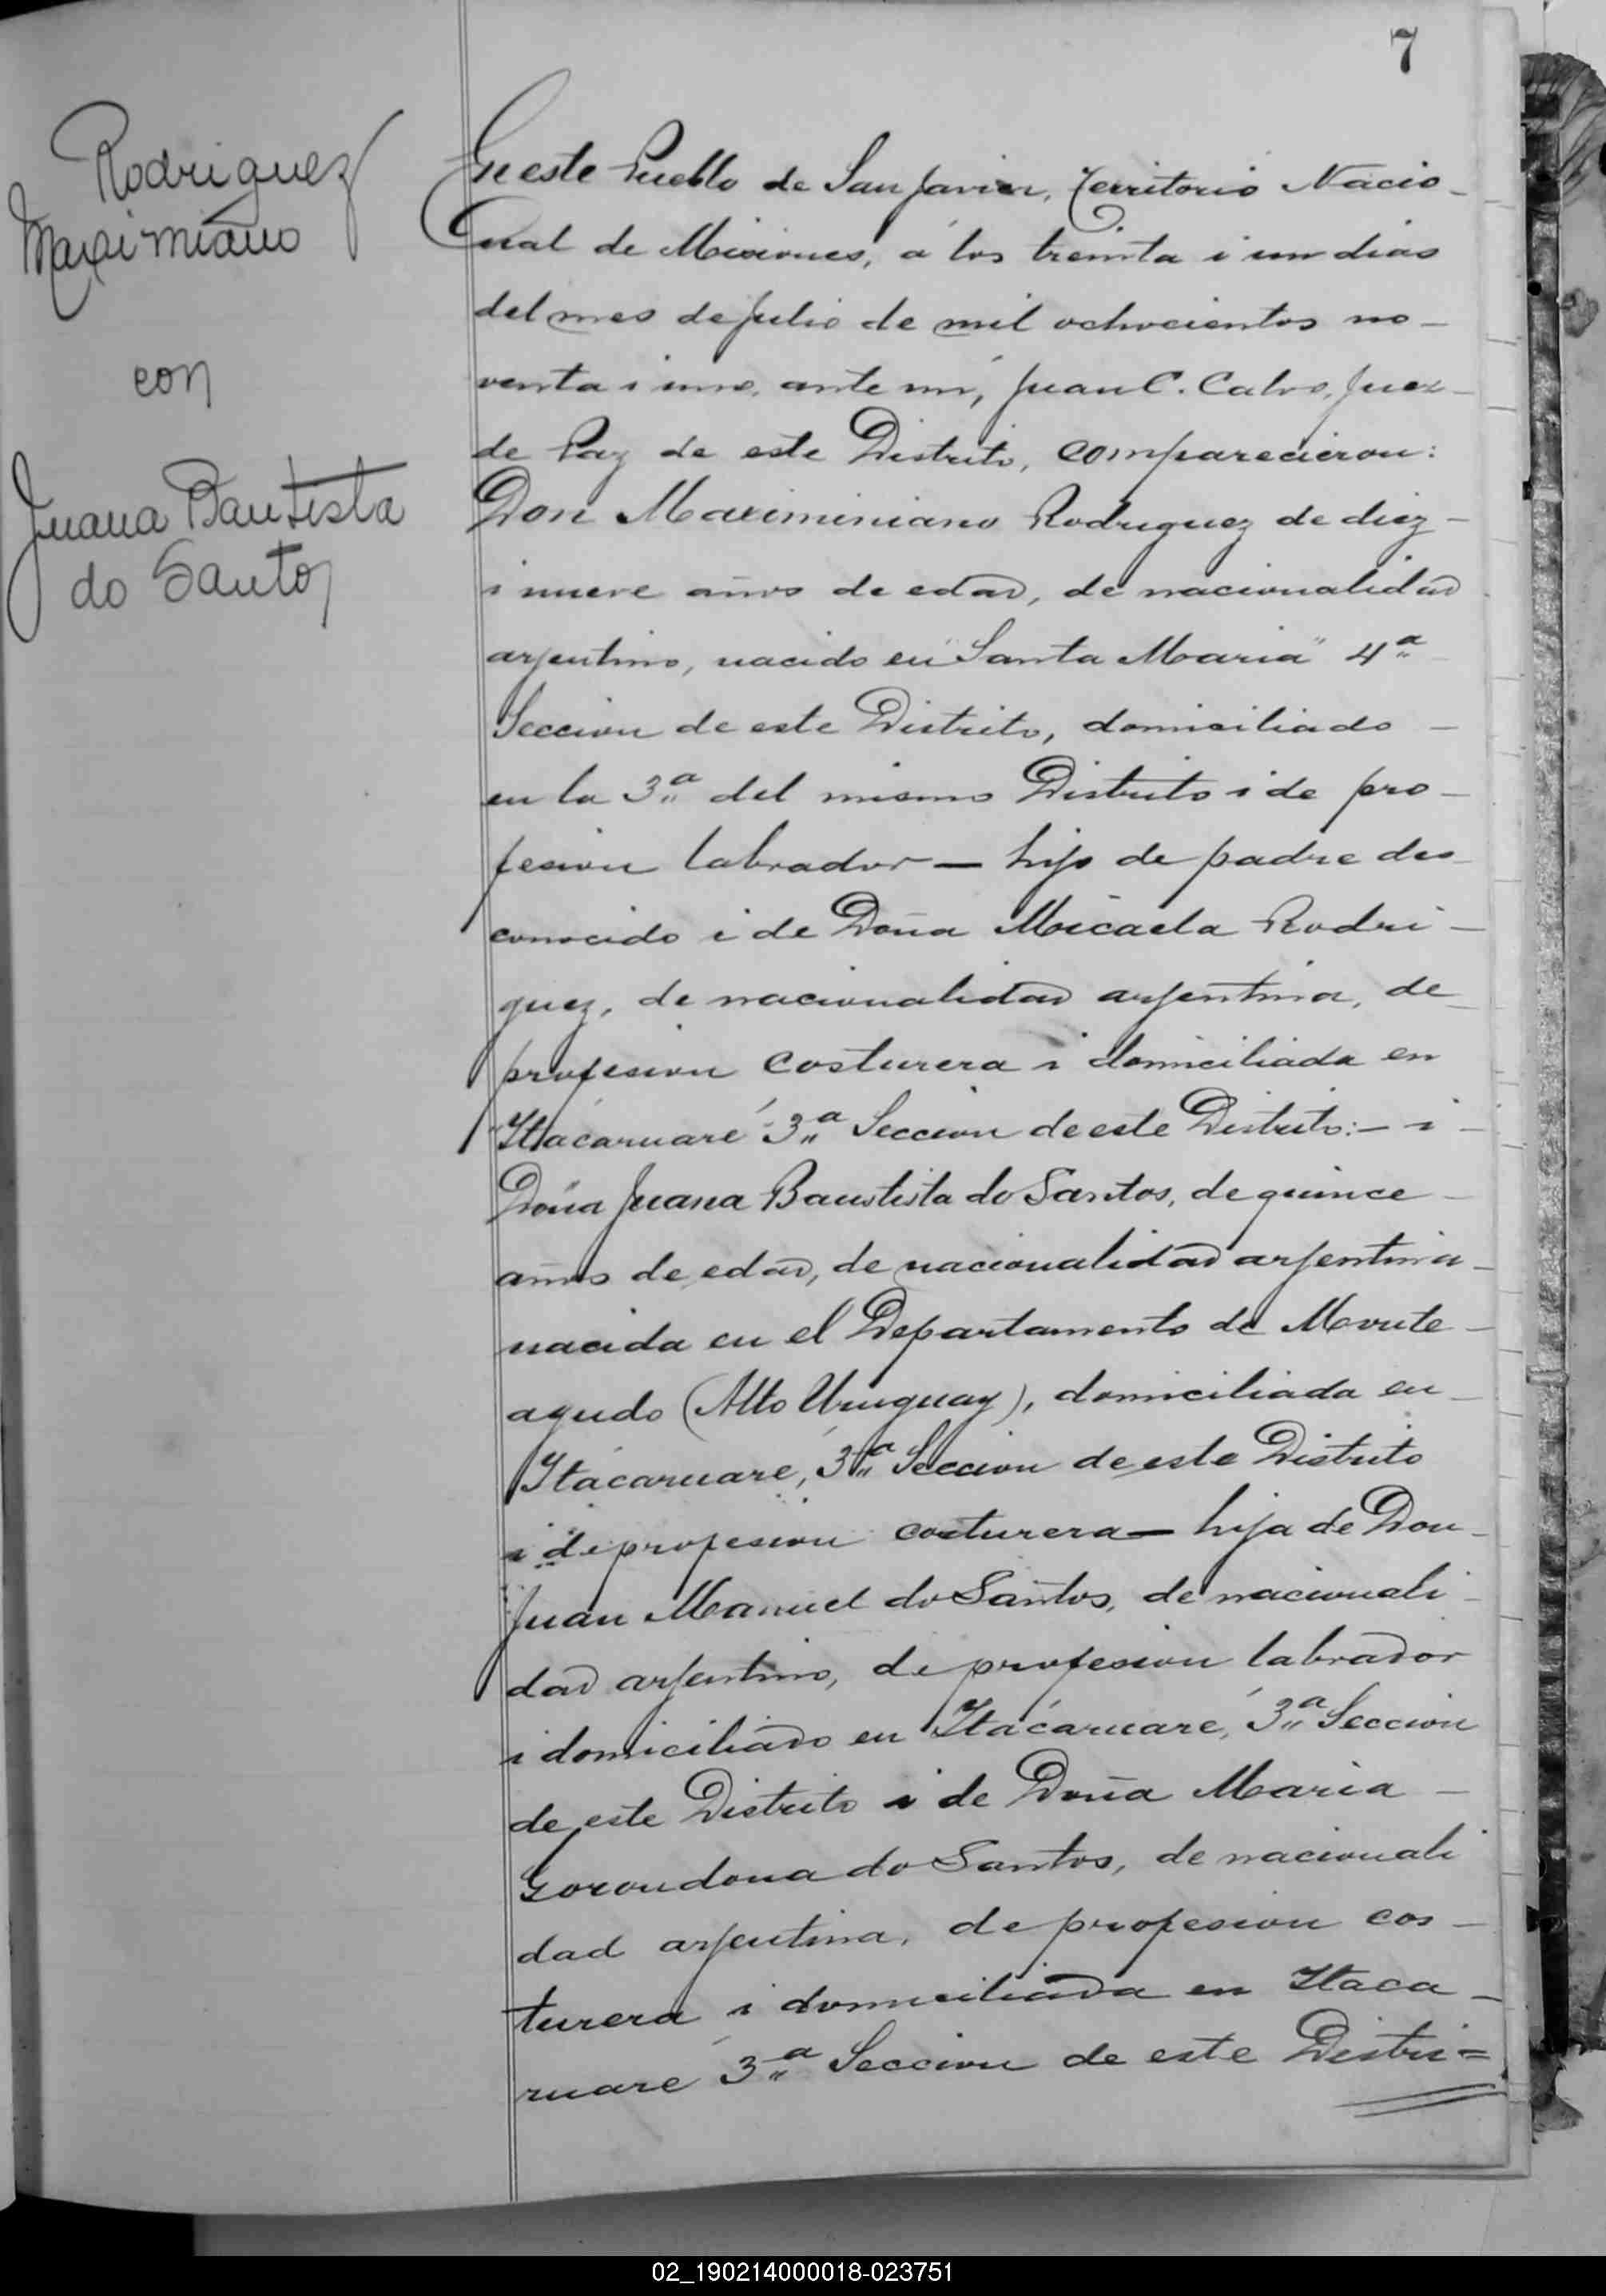 7
Rodriguez
Maximiano
con
Juana Bautista
do Santos
En este Pueblo de San Javier, Territorio Nacio-
nal de Misiones, á los treinta i un dias
del mes de Julio de mil ochocientos no-
venta i uno, ante mi, Juan C. Calvo, Juez
de Paz de este Distrito, comparecieron:
Don Maximiniano Rodriguez de diez-
i nueve años de edad, de nacionalidad
arjentino, nacido en "Santa Maria" 4ª
Seccion de este Distrito, domiciliado -
en la 3ª del mismo Distrito i de pro-
fesion labrador — hijo de padre des-
conocido i de Doña Micaela Rodri-
guez, de nacionalidad arjentina, de
profesion costurera i domiciliada en
Itácaruaré 3ª Seccion de este Distrito:- i
Doña Juana Baustista do Santos, de quince
años de edad, de nacionalidad arjentina
nacida en el Departamento de Monte
agudo (Alto Uruguay), domiciliada en
Itacaruaré, 3ª Seccion de este Distrito
i de profesion costurera — hija de Don
Juan Manuel do Santos, de nacionali
dad arjentino, de profesion labrador
i domiciliado en Itácaruaré, 3ª Seccion
de este Distrito i de Doña Maria -
Gorondona do Santos, de nacionali
dad arjentina, de profesion cos-
turera i domiciliada en Itaca-
ruaré 3ª Seccion de este Distri=
02_190214000018-023751